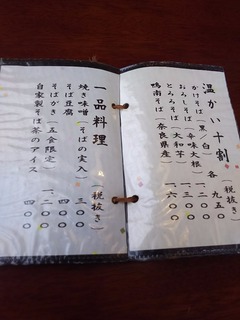 温かい十割
(税抜き)
かけそば(黒/白) 各 九五〇
おろしそば(辛味大根) 一、一三〇
とろろそば(大和芋) 一、三〇〇
鴨南そば(奈良県産) 一、六〇〇
一品料理
(税抜き)
焼き味噌(そばの実入) 三〇〇
そば豆腐 四〇〇
そばがき(五食限定) 一、二〇〇
自家製そば茶のアイス 四〇〇